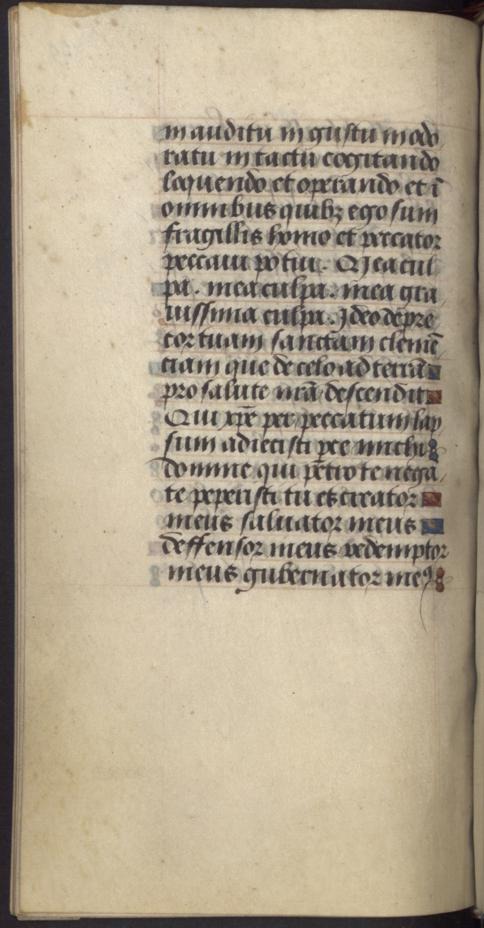 in auditu in gustu in odo
ratu in tactu cogitando
loquendo et operando et ī
omnibus quibꝫ ego sum
fragillis homo et peccator
peccaui potui. Mea cul
pa. mea culpa. mea gra
uissima culpa. Ideo depre
cor tuam sanctam clemē
ciam que de celo ad terrā
pro salute nr̄a descendit
Qui xp̄e per peccatum lap
sum adiecisti pce michi
domine qui petro te nega
te pepercisti tu es creator
meus saluator meus
deffensor meus redemptor
meus gubernator meꝰ